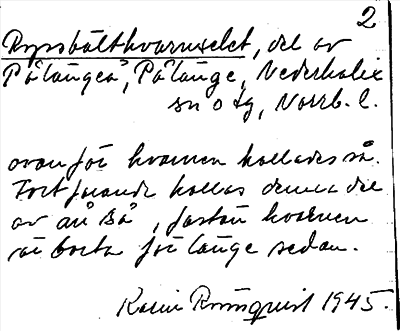 2
Rypsbältkvarnselet, del av
Pålängeå, Pålänge, Nederkalix
sn o tg, Norrb. l.
ovanför kvarnen kallades så.
Fortfarande kallas denna del
av ån så, fastän kvarnen
är borta för länge sedan.
Karin Rönnquist 1945.